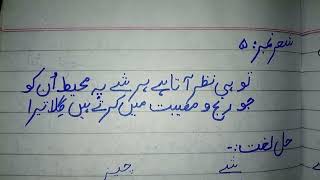 شعر نمبر: ۵
تو ہی نظر آتا ہے ہر شے پہ محیط اُن کو
جو رنج و مصیبت میں کرتے ہیں گِلا تیرا
حل لغت:-
شے چیز